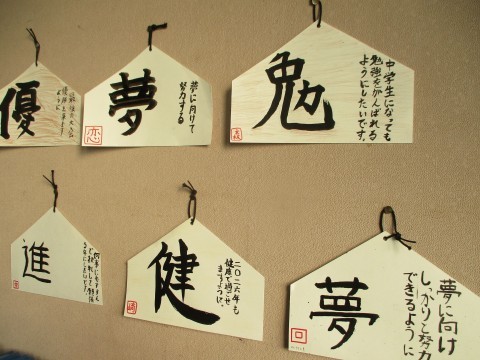 優
夢
夢に向けて
努力する
恋
勉
中学生になっても
勉強をがんばれる
ようにしたいです。
進
健
二〇一六年も
健康で過ごせ
ますように。
夢
夢に向け
しっかりと努力
できるように